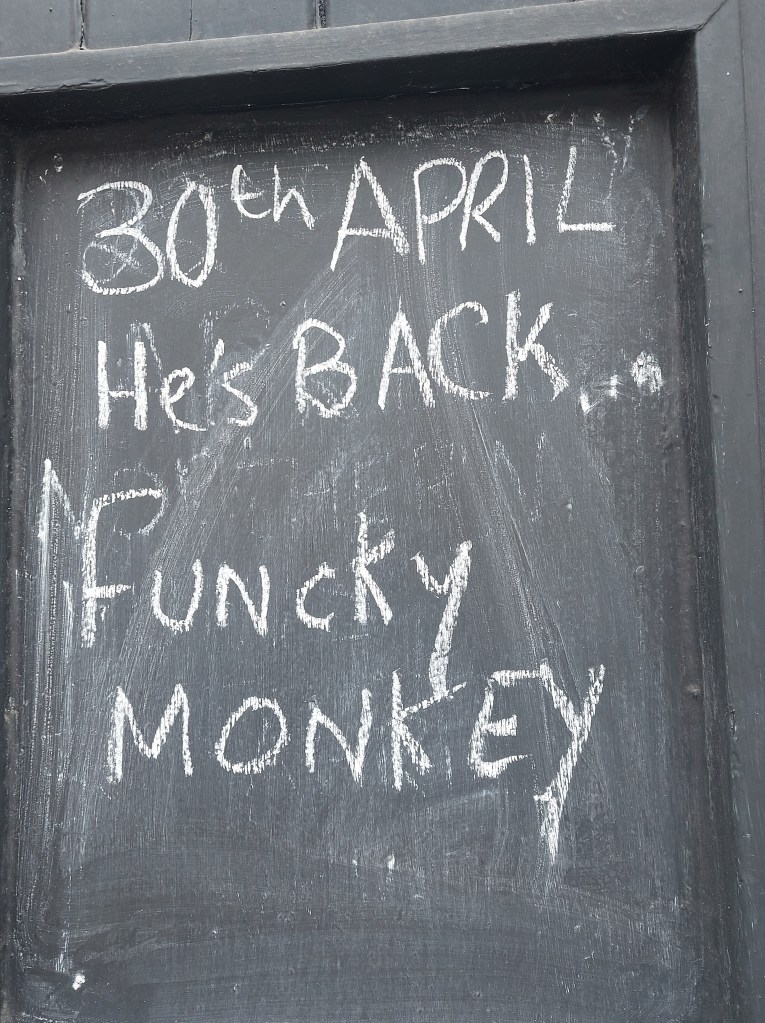 30th APRIL
He's BACK...
Funcky
MONKEY